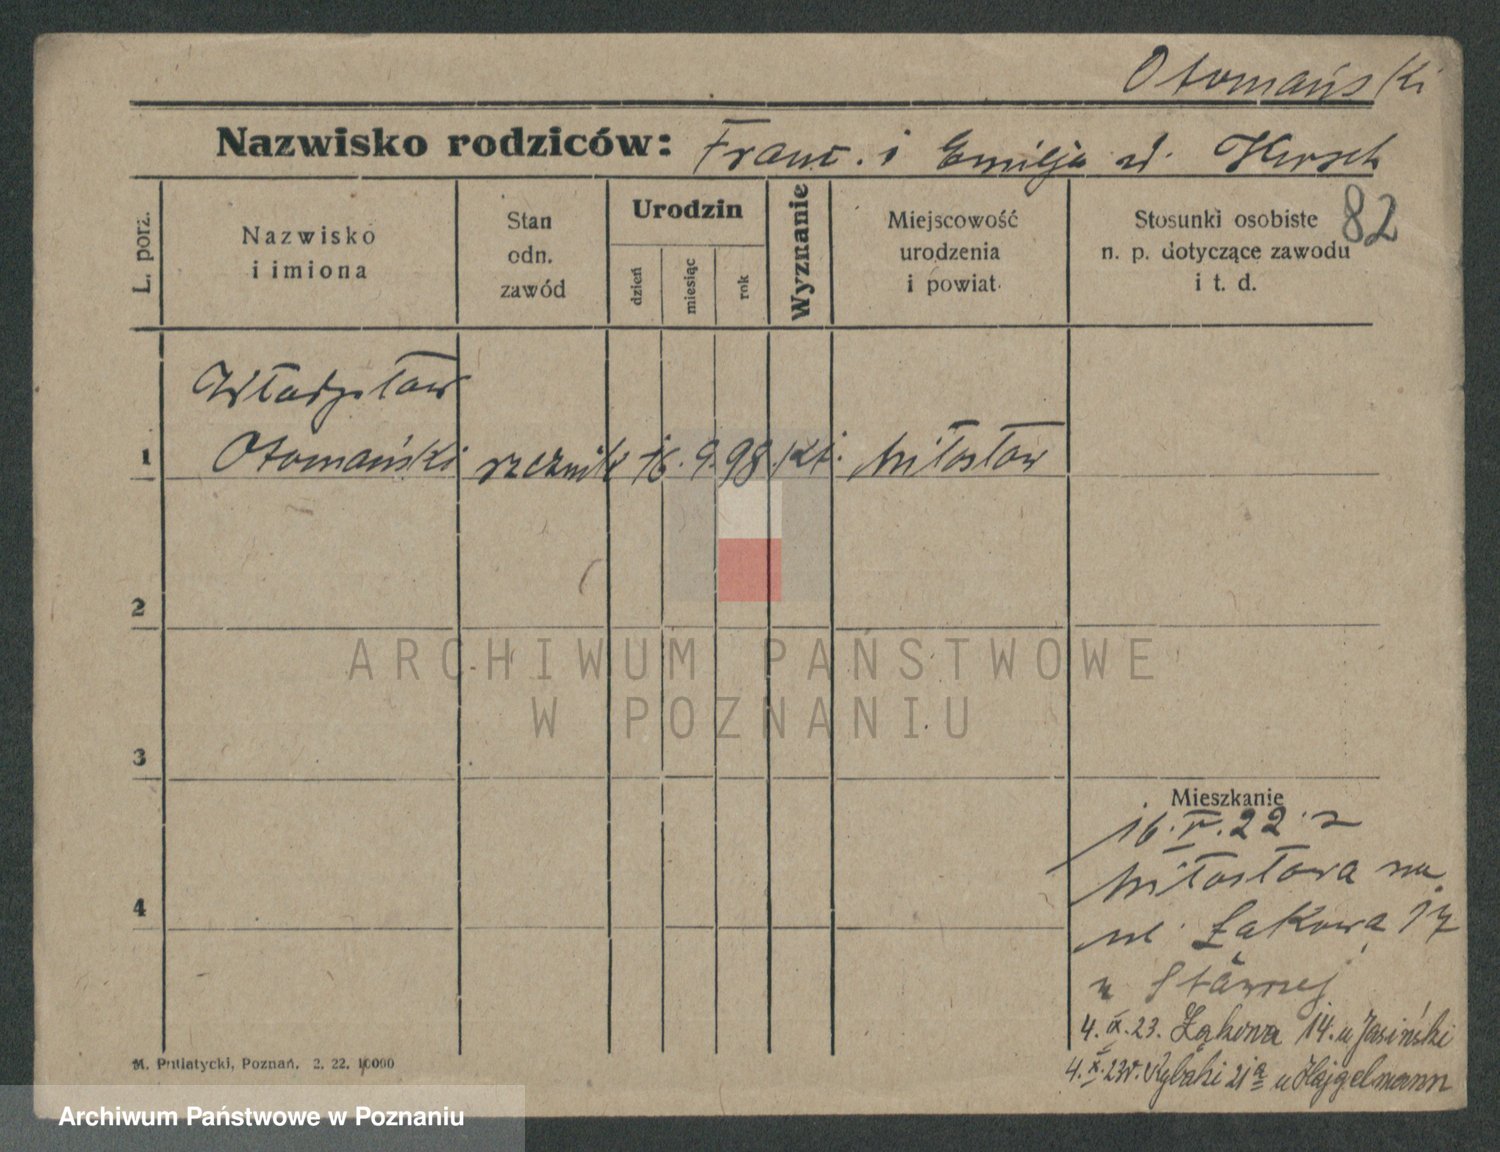 Otomański
Nazwisko rodziców: Franc. i Emilja zd. Hirsch
82
L. porz.
Nazwisko
i imiona
Stan
odn.
zawód
Urodzin
dzień
miesiąc
rok
Wyznanie
Miejscowość
urodzenia
i powiat
Stosunki osobiste
n. p. dotyczące zawodu
i t. d.
Władysław
1 Otomański rzeźnik 16. 9. 98 kt. Miłosław
2
ARCHIWUM PAŃSTWOWE
W POZNANIU
3
Mieszkanie
16. V. 22. z
Miłosława na
4
ul. Łąkowa 17
u
4. IX. 23. Łąkowa 14. u Jasiński
4. X. 23r. Rybaki 21a u Hajgelmann
M. Putiatycki, Poznań. 2. 22. 10000
Archiwum Państwowe w Poznaniu